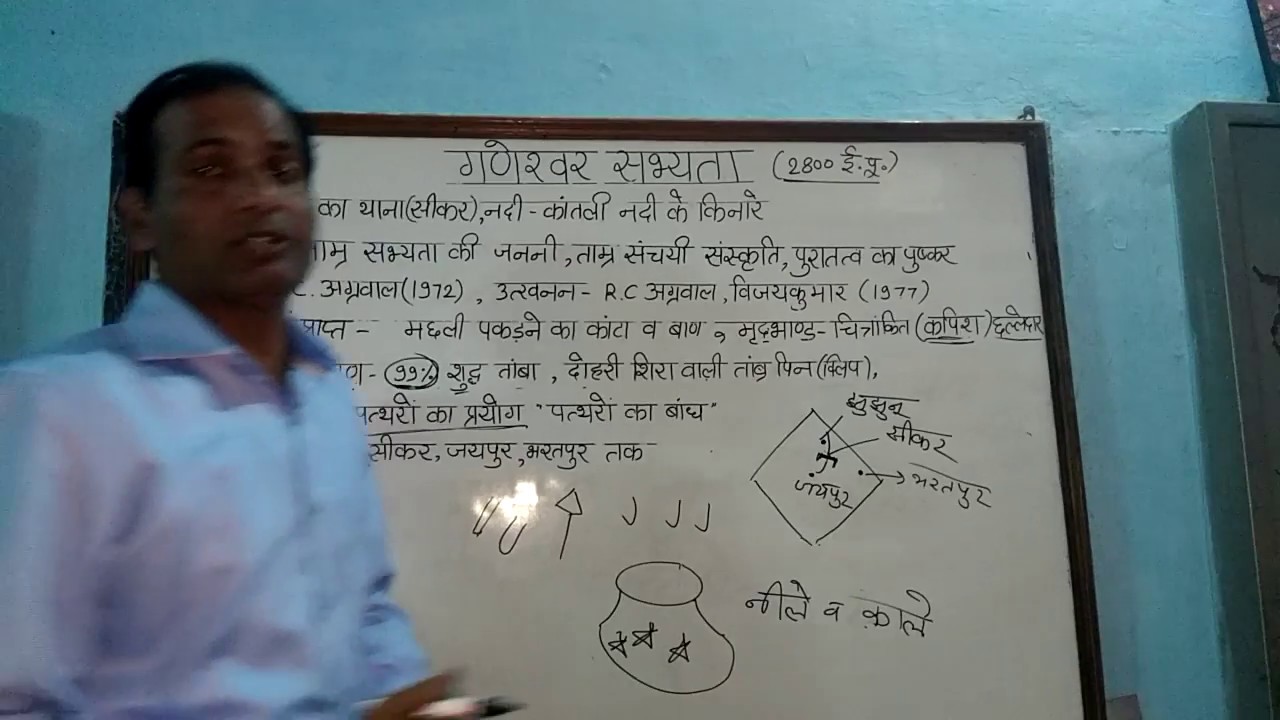 गणेश्वर सभ्यता (2800 ई.पू.)
का थाना(सीकर),नदी - कांतली नदी के किनारे
ताम्र सभ्यता की जननी, ताम्र संचयी संस्कृति, पुरातत्व का पुष्कर
C. अग्रवाल(1972) , उत्खनन - R.C अग्रवाल, विजयकुमार (1977)
प्राप्त - मछली पकड़ने का कांटा व बाण , मृदभाण्ड - चित्रांकित (कपिश) छल्लेदार
99% शुद्ध तांबा , दोहरी शिरा वाली तांब्र पिन (क्लिप),
पत्थरों का प्रयोग "पत्थरों का बांध"
सीकर, जयपुर, भरतपुर तक
झुझुनू
सीकर
जयपुर
भरतपुर
नीले व काले